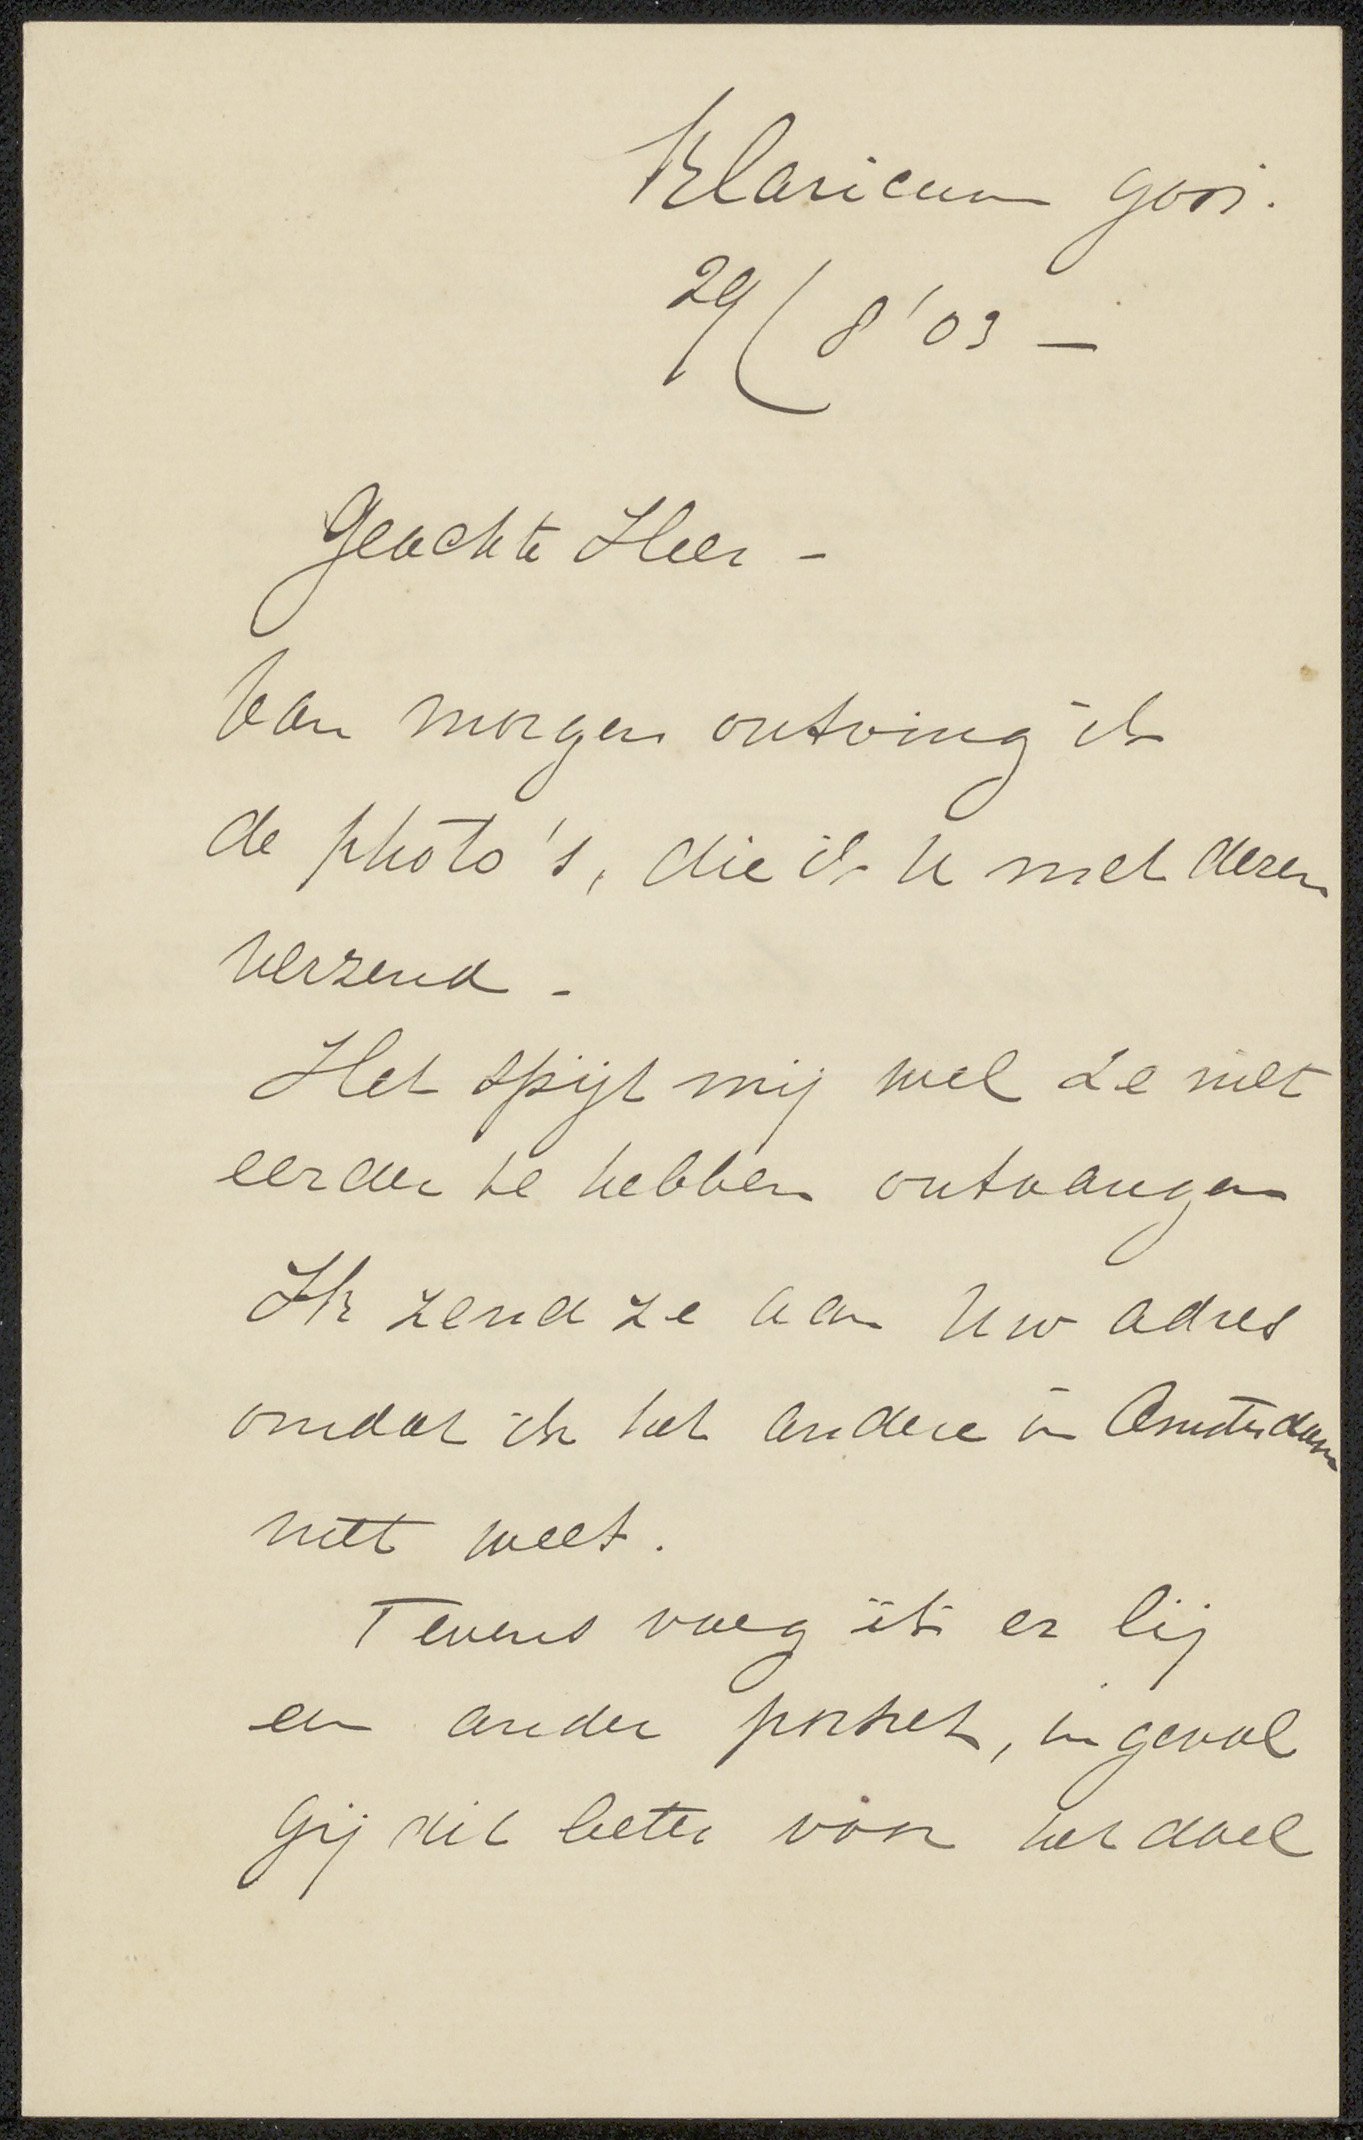 Blaricum gooi.
29/8 '03 —
Geachte Heer -
Van morgen ontving ik
de photo's, die ik U met dezen
verzend -
Het spijt mij wel ze niet
eerder te hebben ontvangen
Ik zend ze aan Uw adres
omdat ik het andere in Amsterdam
niet weet.
Tevens voeg ik er bij
een ander portret, in geval
Gij dit beter voor het doel